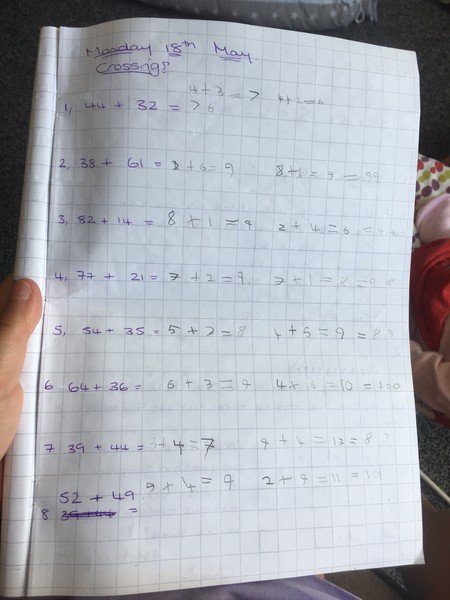 Monday 18th May
Crossings
4+3 = 7 4+2=6
1, 44 + 32 = 76
2, 38 + 61 = 3 + 6 = 9 8+1 = 9 = 99
3, 82 + 14 = 8 + 1 = 9 2 + 4 = 6 = 96
4, 77 + 21 = 7 + 2 = 9 7 + 1 = 8 = 98
5, 54 + 35 = 5 + 3 = 8 4 + 5 = 9 = 89
6 64 + 36 = 6 + 3 = 9 4 + 6 = 10 = 100
7 39 + 44 = 3+4 = 7 9 + 4 = 13 = 83
52 + 49 5 + 4 = 9 2 + 9 = 11 =
8 39+44 =